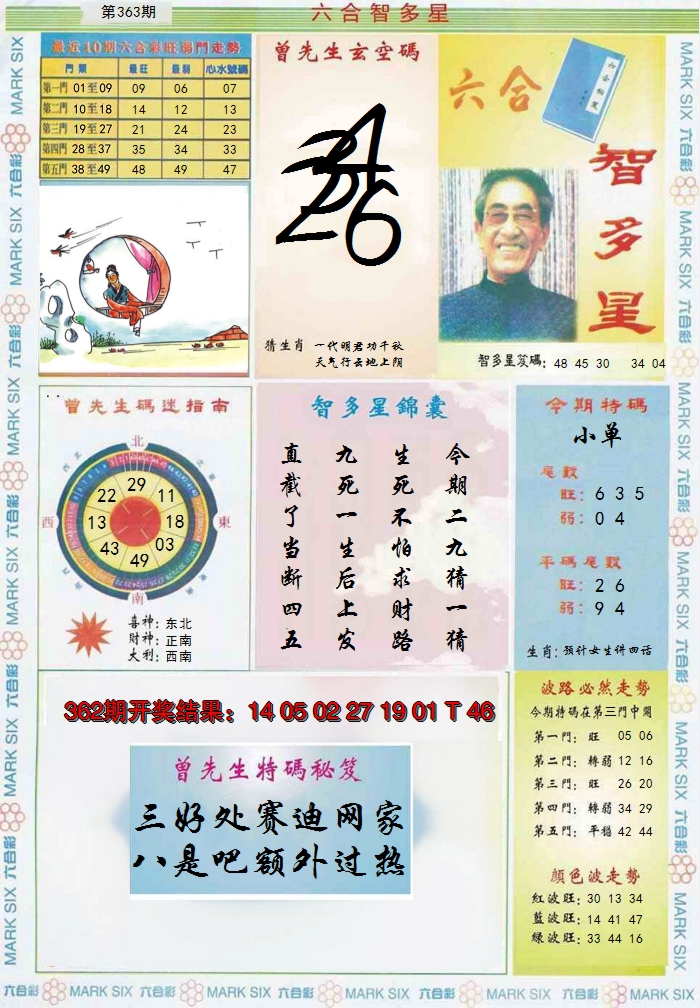 第363期
六合智多星
最近10期六合彩旺弱門走勢
門類 最旺 最弱 心水號碼
第一門 01至09 09 06 07
第二門 10至18 14 12 13
第三門 19至27 21 24 23
第四門 28至37 35 34 33
第五門 38至49 48 49 47
曾先生玄空碼
猜生肖 一代明君功千秋
天气行云地上阴
六合
智多星
智多星笈碼: 48 45 30 34 04
曾先生碼迷指南
北
西
東
南
29
22
11
13
18
43
03
49
喜神: 东北
財神: 正南
大利: 西南
智多星錦囊
今期二九猜一猜
生死不怕求财路
九死一生后上发
直截了当断四五
今期特碼
小单
尾數
旺: 6 3 5
弱: 0 4
平碼尾數
旺: 2 6
弱: 9 4
生肖: 预计女生讲四话
362期开奖结果: 14 05 02 27 19 01 T 46
曾先生特碼秘笈
三好处赛迪网家
八是吧额外过热
波路必然走勢
今期特碼在第三門中開
第一門: 旺 05 06
第二門: 轉弱 12 16
第三門: 旺 26 20
第四門: 轉弱 34 29
第五門: 平穩 42 44
顏色波走勢
紅波旺: 30 13 34
藍波旺: 14 41 47
綠波旺: 33 44 16
六合彩 MARK SIX 六合彩 MARK SIX 六合彩 MARK SIX 六合彩 MARK SIX 六合彩 MARK SIX